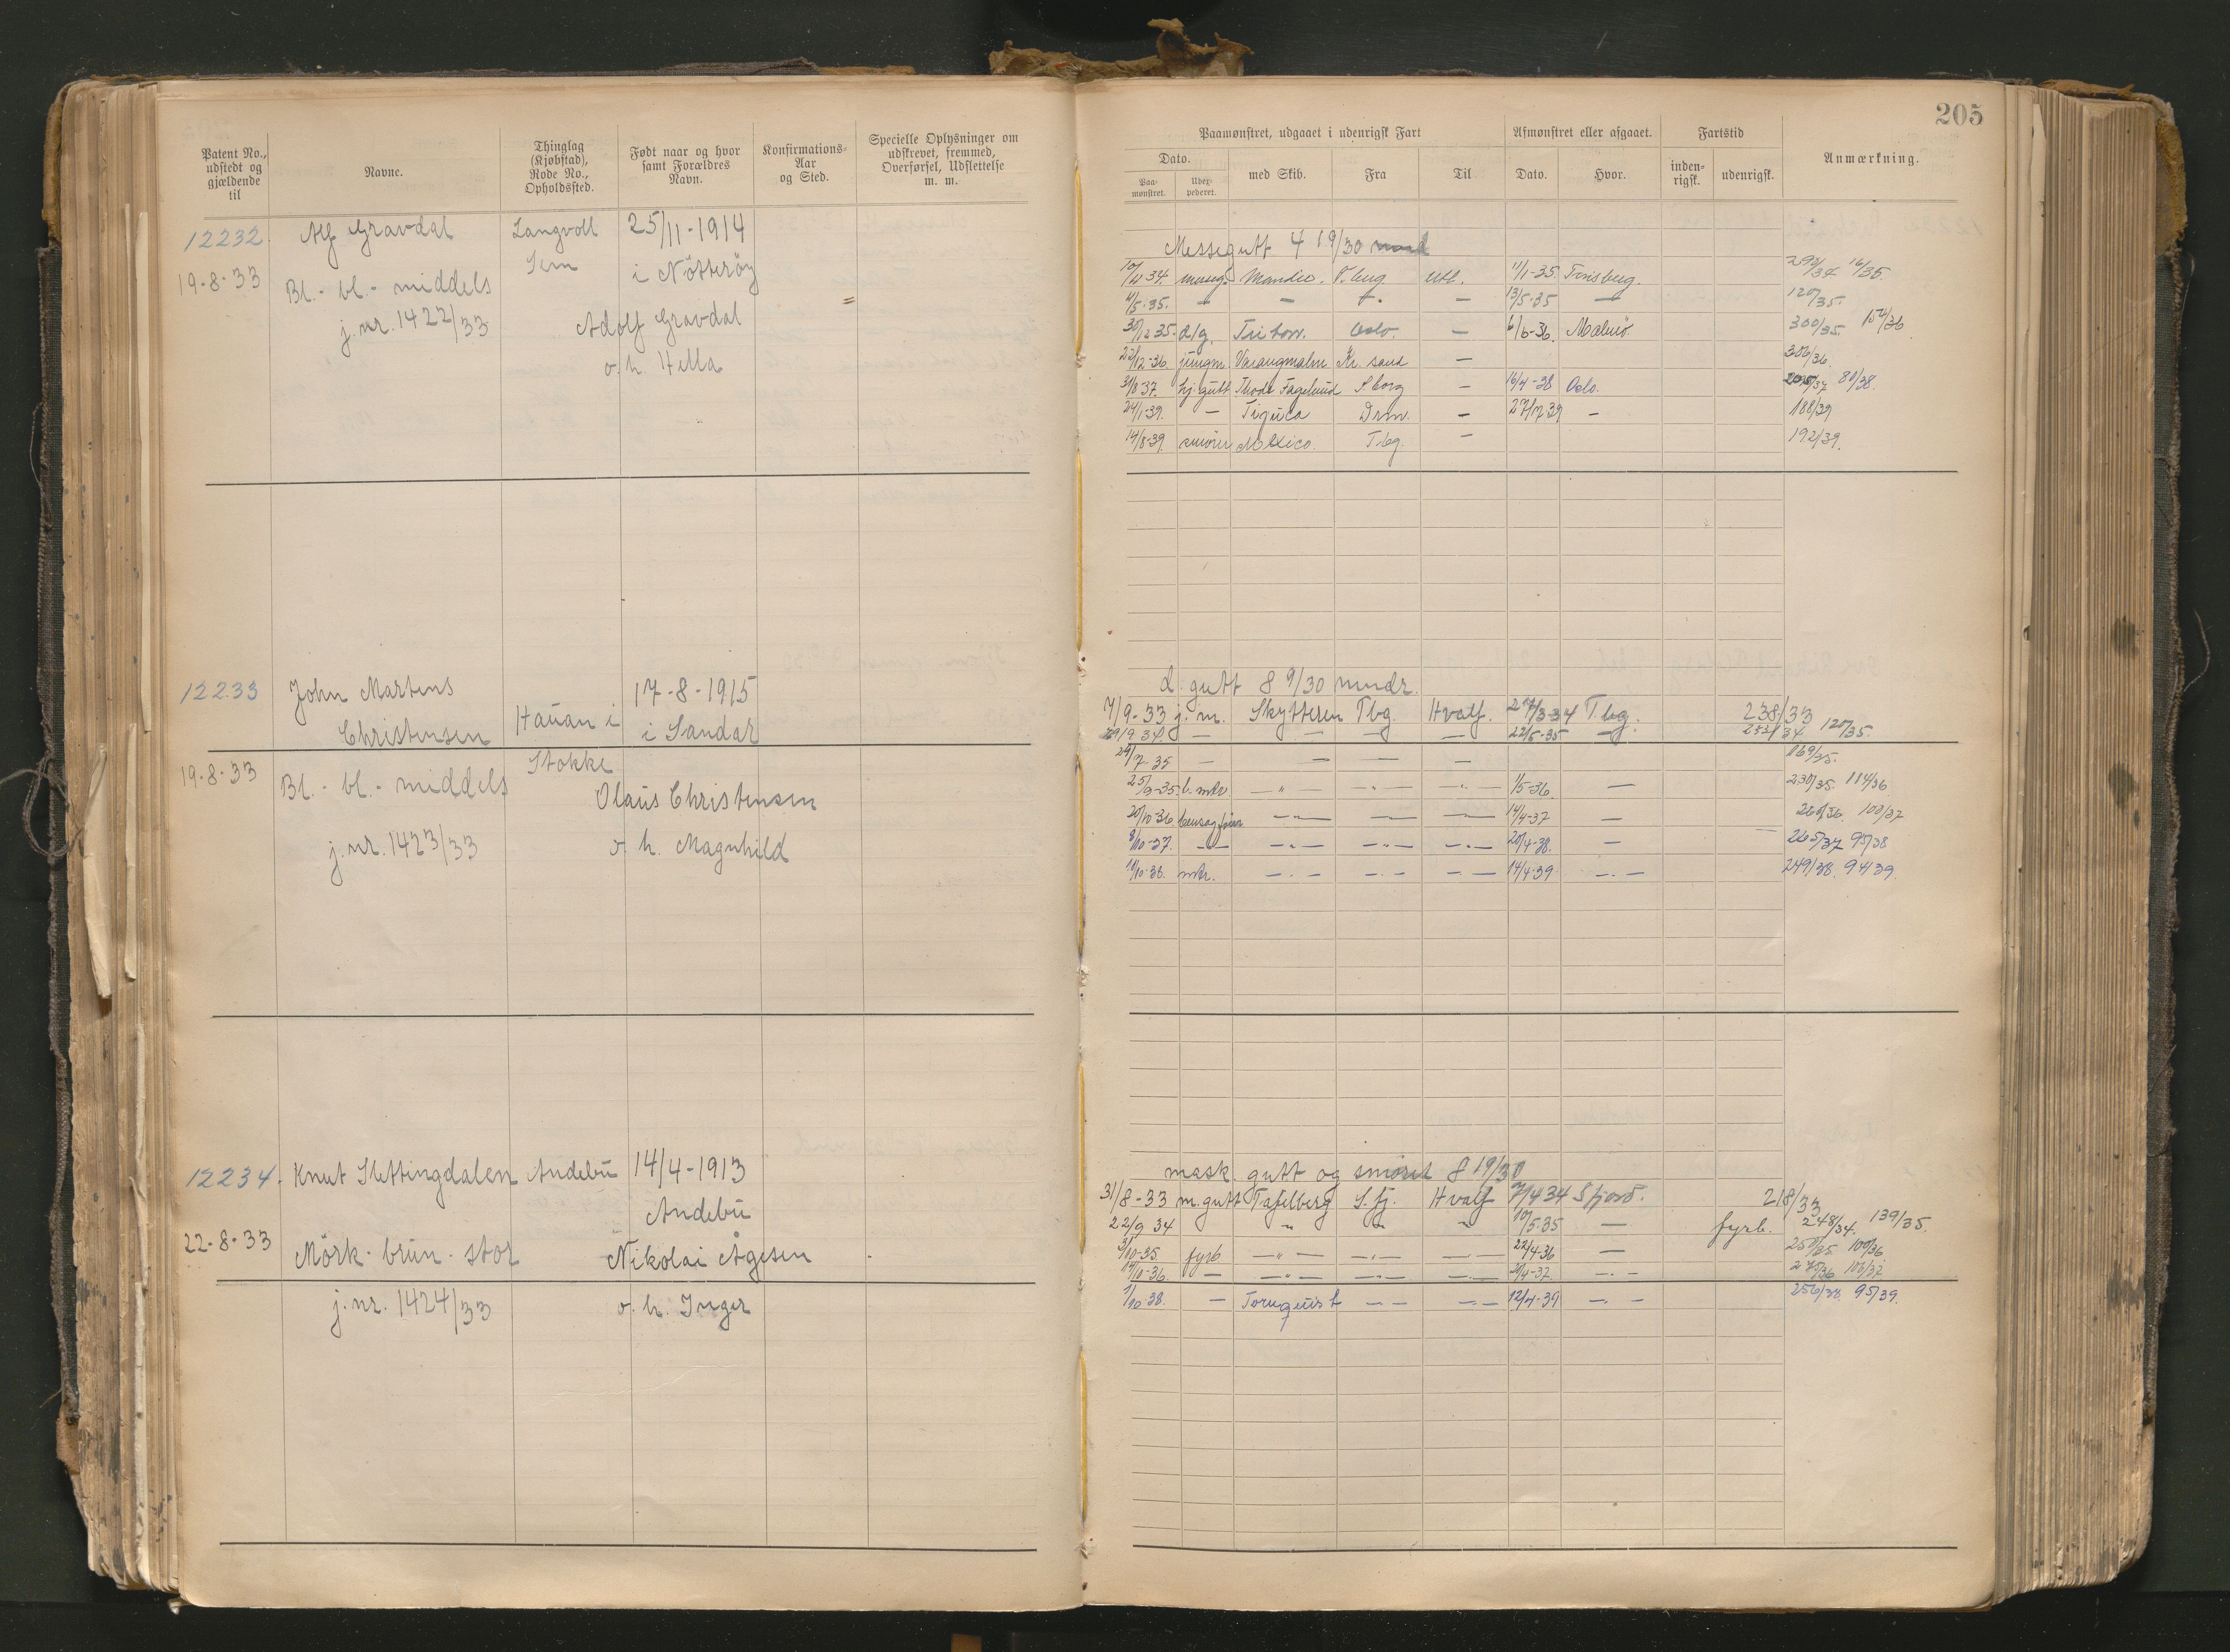 205
Patent No., udstedt og gjældende til
Navne.
Thinglag (Kjøbstad), Rode No., Opholdssted.
Født naar og hvor samt Forældres Navn.
Konfirmations-Aar og Sted.
Specielle Oplysninger om udskrevet, fremmed, Overførsel, Udslettelse m. m.
Paamønstret, udgaaet i udenrigsk Fart
Afmønstret eller afgaaet.
Fartstid
Anmærkning.
Dato.
Paa-mønstret.
med Skib.
Fra
Til
Dato.
Hvor.
inden-rigsk.
udenrigsk.
12232 Alf Gravdal Langvoll 25/11-1914
Sem i Nötteröy
19-8-33 Bl. - bl. - middels
j.nr. 1422/33 Adolf Gravdal
o. h. Hella
Messegutt 4 19/30
34. Tbug utl. 11/1-35. Tønsberg. 16/35.
4/5-35. — — — — 13/5-35 — 120/35.
30/12 35. d/g. Oslo. — 6/6-36. Malmö. 300/35. 156/36
22/12-36. jungm. Varangmalm Kr. sand — 306/36.
31/8 37. hj. gutt Thode Fagelund S borg — 16/4-38 Oslo. 80/38.
24/1-39. — Tiguca Drm. — 27/7 39 — 188/39
14/8-39. smörer Mexico. Tbg. — 192/39.
12233 John Martens 17-8-1915
Christensen Hauan i i Sandar
19-8-33 Bl. - bl. - middels Stokke
Olaus Christensen
j.nr. 1423/33 o. h. Magnhild
d. gutt 8 9/30 mndr.
7/9-33 j. m. Skytteren Tbg. Hvalf. 27/3-34 Tbg. 238/33
29/9 34. — — — — 22/5-35 — 120/35.
24/7-35 — — — — 169/35.
25/9-35. — " — — " — — " — 1/5-36. — 230/35. 114/36
20/10-36 — " — — — 14/4-37 — 260/36. 108/37
8/10-37. — — — " — — " — — " — 20/4-38. — 265/37 95/38
11/10-38. mtr. — . — — . — — — 14/4-39 — . — 249/38. 94/39.
12234. Knut Slettingdalen Andebu 14/4-1913
Andebu
22-8-33 Mörk - brun - stor Nikolai Ågesen
j.nr. 1424/33 o. h. Inger
mask. gutt og smörer 8 19/30
31/8-33 m. gutt Tafelberg S. fj. Hvalf 7/4 34 S fjord. 218/33
22/9 34 " " " 10/5-35 — fyrb. 248/34. 139/35.
3/10-35. fyrb — " — — " — — 22/4-36 — 250/35. 100/36
14/10-36. — — " — — " — — 20/4-37. — . — 275/36 103/37
1/10-38. — Tornquist — — — . — 12/4-39 — . — 256/38. 95/39.